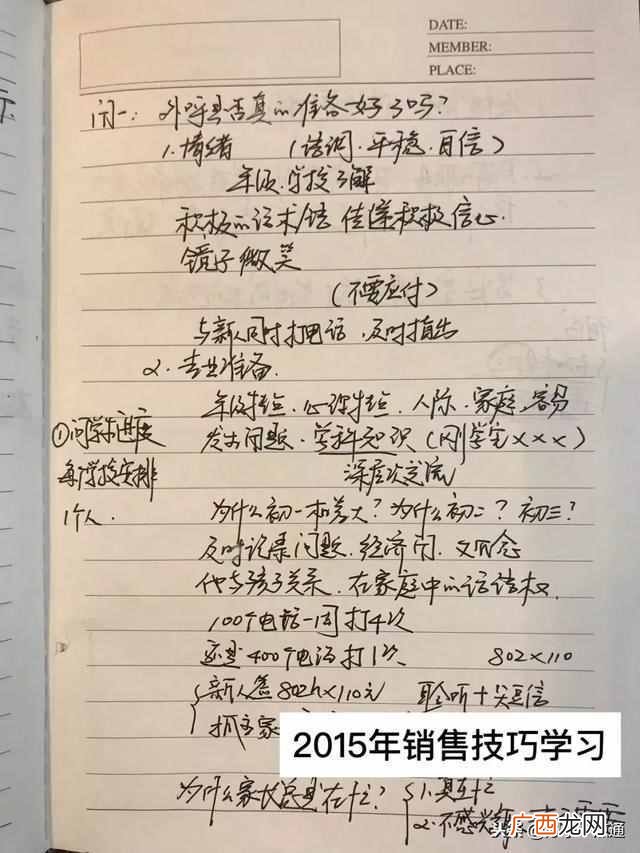 DATE:
MEMBER:
PLACE:
问一：外呼是否真的准备好了吗？
1.情绪 （语调.平稳.自信）
年级.学校了解
积极的话术/语 传递积极信心.
镜子微笑
（不要应付）
与新人同时打电话.及时指出
2.专业准备.
年级特征.心理特征.人际.家庭.容易
①问学校进度
发生问题.学科知识（刚学完×××）
每个学校安排
深层次交流
1个人.
为什么初一相差大？为什么初二？初三？
及时记录问题.经济问.
他与孩子关系.在家庭中的话语权.
100个电话一周打4次
还是400个电话打1次、 802×110
新人 802h×110元 聆听+短信
抓
2015年销售技巧学习
为什么家长总是在忙？ 1.真在忙
2.不感兴趣
头条
广西龙网